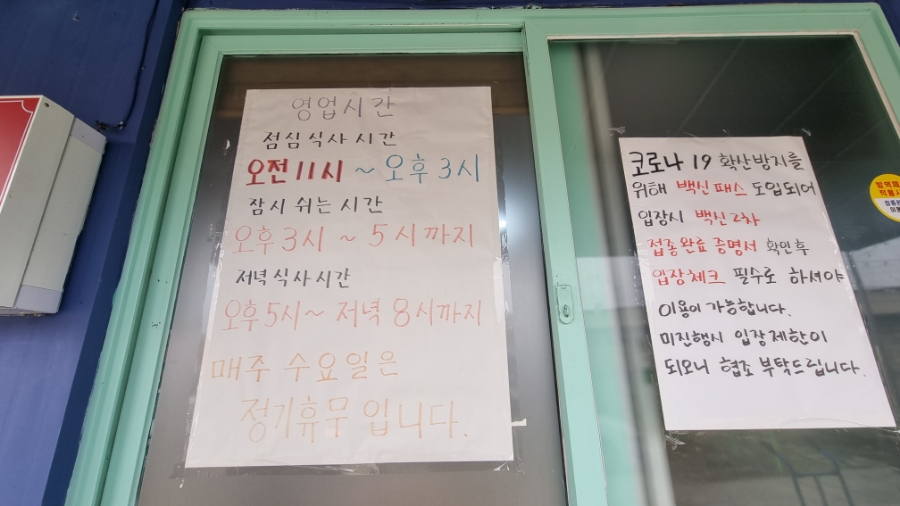 영업시간
점심식사시간
오전11시 ~ 오후 3시
잠시 쉬는 시간
오후3시 ~ 5시까지
저녁식사시간
오후5시 ~ 저녁 8시까지
매주 수요일은
정기휴무 입니다.
코로나 19 확산방지를
위해 백신패스 도입되어
입장시 백신2차
접종완료 증명서 확인후
입장체크 필수로 하셔야
이용이 가능합니다.
미진행시 입장제한이
되오니 협조 부탁드립니다.